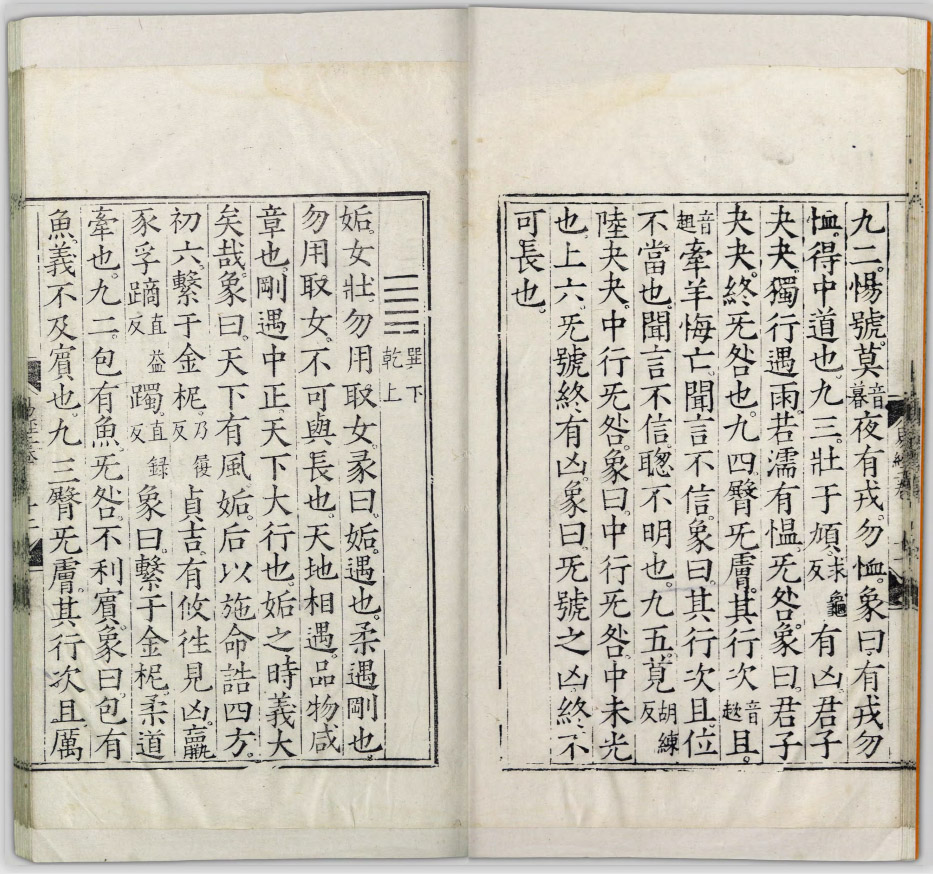 九二。惕號。莫音暮夜有戎。勿恤。象曰。有戎勿
恤。得中道也。九三。壯于頄。求龜反有凶。君子
夬夬。獨行遇雨。若濡有慍。旡咎。象曰。君子
夬夬。終旡咎也。九四。臀旡膚。其行次且。音趑
音趄牽羊悔亡。聞言不信。象曰。其行次且。位
不當也。聞言不信。聦不明也。九五。莧胡練反
陸夬夬。中行旡咎。象曰。中行旡咎。中未光
也。上六。旡號。終有凶。象曰。旡號之凶。終不
可長也。
巽下
乾上
姤。女壯。勿用取女。彖曰。姤。遇也。柔遇剛也。
勿用取女。不可與長也。天地相遇。品物咸
章也。剛遇中正。天下大行也。姤之時義大
矣哉。象曰。天下有風姤。后以施命誥四方。
初六。繫于金柅。乃復反貞吉。有攸往見凶。羸
豕孚蹢直益反躅。直録反象曰。繫于金柅。柔道
牽也。九二。包有魚。旡咎。不利賓。象曰。包有
魚。義不及賓也。九三。臀旡膚。其行次且。厲